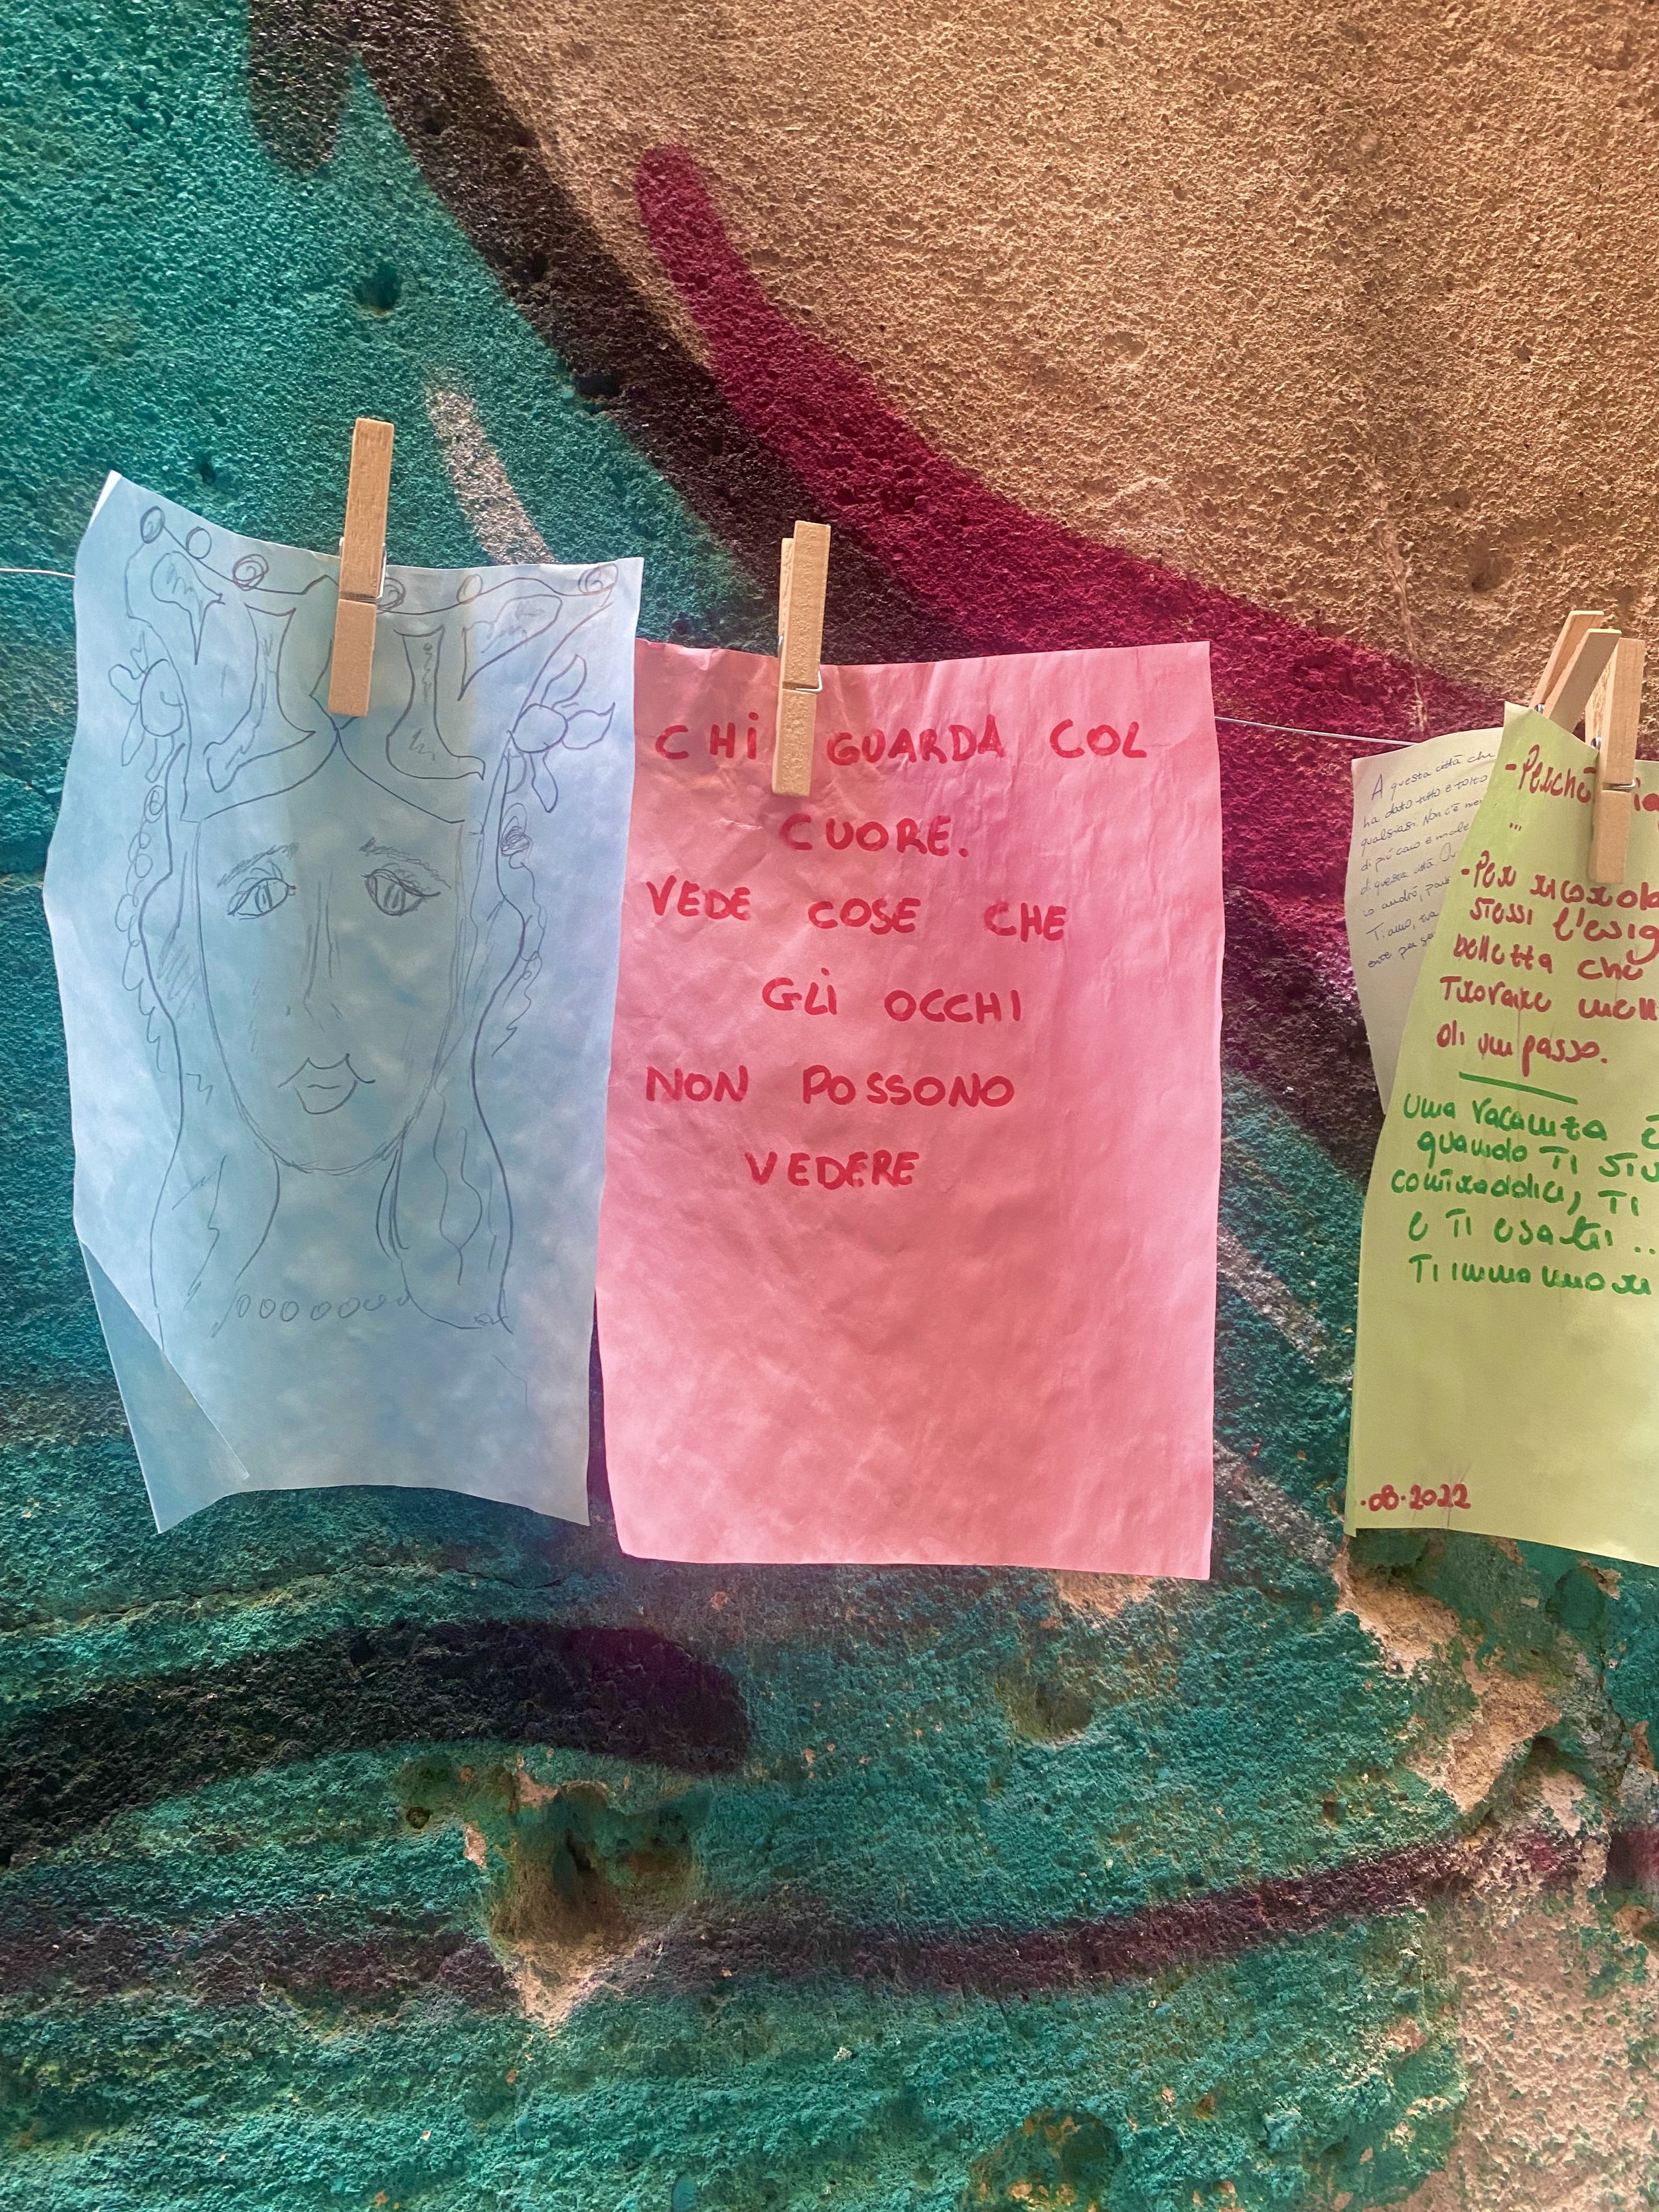 CHi GUARDA COL
CUORE.
VEDE COSE CHE
GLi OCCHI
NON POSSONO
VEDERE
A questa città che
ha dato tutto e tolto
qualsiasi. Non c'è
di più caro e
di questa città.
io andrò,
Ti amo,
- Perchè
...
- Per
stessi l'esig
bellezza che
Trovare
di un passo.
Una vacanza è
quando Ti
contraddici, Ti
e Ti esalti ..
Ti innamori
.08.2022